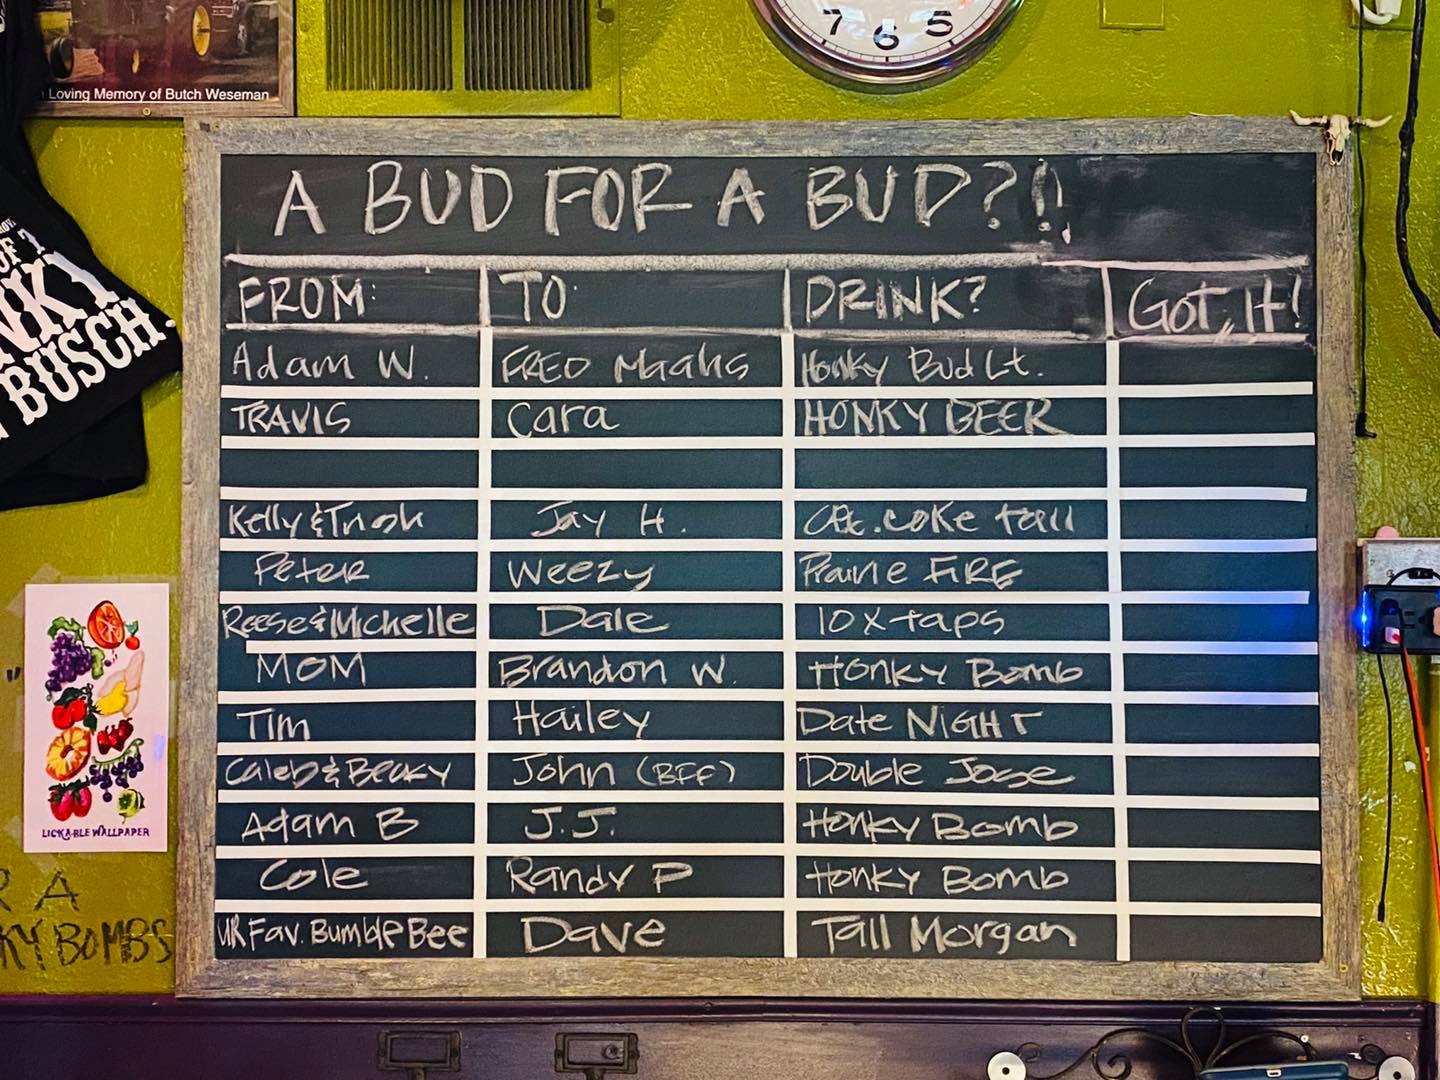 7 6 5
Loving Memory of Butch Weseman
A BUD FOR A BUD?!
FROM: TO: DRINK? GOT IT!
Adam W. FRED Maahs Honky Bud Lt.
TRAVIS Cara HONKY BEER
Kelly & Trish Jay H. coke tall
Peter Weezy Prairie FIRE
Reese & Michelle Dale 10 x taps
MOM Brandon W. Honky Bomb
Tim Hailey Date NIGHT
Caleb & Becky John (BFF) Double Jose
Adam B J.J. Honky Bomb
Cole Randy P Honky Bomb
UR Fav. Bumble Bee Dave Tall Morgan
OF T
NKY
BUSCH.
LICKABLE WALLPAPER
R A
KY BOMBS